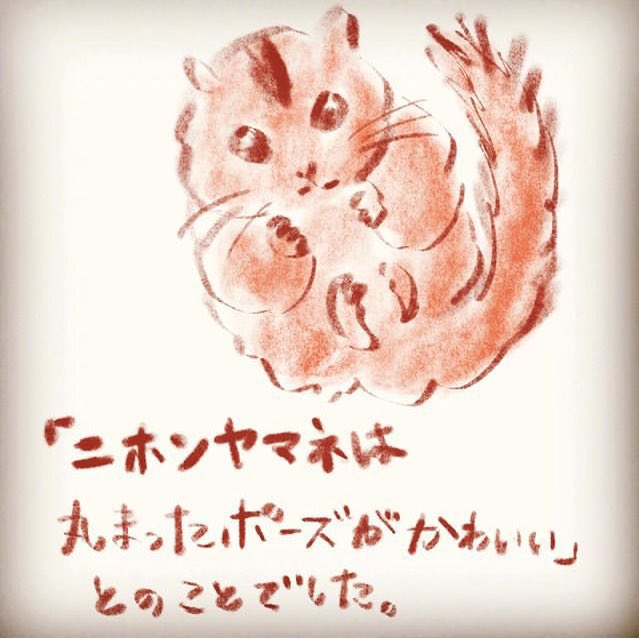 「ニホンヤマネは
丸まったポーズがかわいい」
とのことでした。